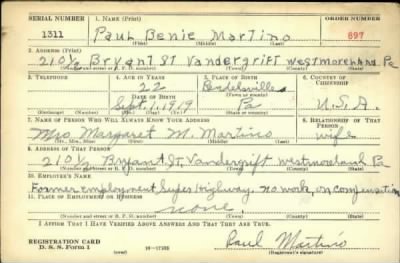 SERIAL NUMBER 1. NAME (Print) ORDER NUMBER
1311 Paul Benie Martino 697
(First) (Middle) (Last)
2. ADDRESS (Print)
210½ Bryant St Vandergrift Westmoreland Pa
(Number and street or R. F. D. number) (Town) (County) (State)
3. TELEPHONE 4. AGE IN YEARS 5. PLACE OF BIRTH 6. COUNTRY OF CITIZENSHIP
22
DATE OF BIRTH (Town or county)
Sept. 1, 1919 Pa U.S.A.
(Exchange) (No.) (Mo.) (Day) (Yr.) (State or country)
7. NAME OF PERSON WHO WILL ALWAYS KNOW YOUR ADDRESS 8. RELATIONSHIP OF THAT PERSON
Mrs Margaret M. Martino wife
(Mr., Mrs., Miss) (First) (Middle) (Last)
9. ADDRESS OF THAT PERSON
210½ Bryant St, Vandergrift Westmoreland Pa
(Number and street or R. F. D. number) (Town) (County) (State)
10. EMPLOYER'S NAME
Former employment Super Highway. no work, on compensation
11. PLACE OF EMPLOYMENT OR BUSINESS
none.
(Number and street or R. F. D. number) (Town) (County) (State)
I AFFIRM THAT I HAVE VERIFIED ABOVE ANSWERS AND THAT THEY ARE TRUE.
REGISTRATION CARD
D. S. S. Form 1 (over) 16—17105 Paul Martino
(Registrant's signature)